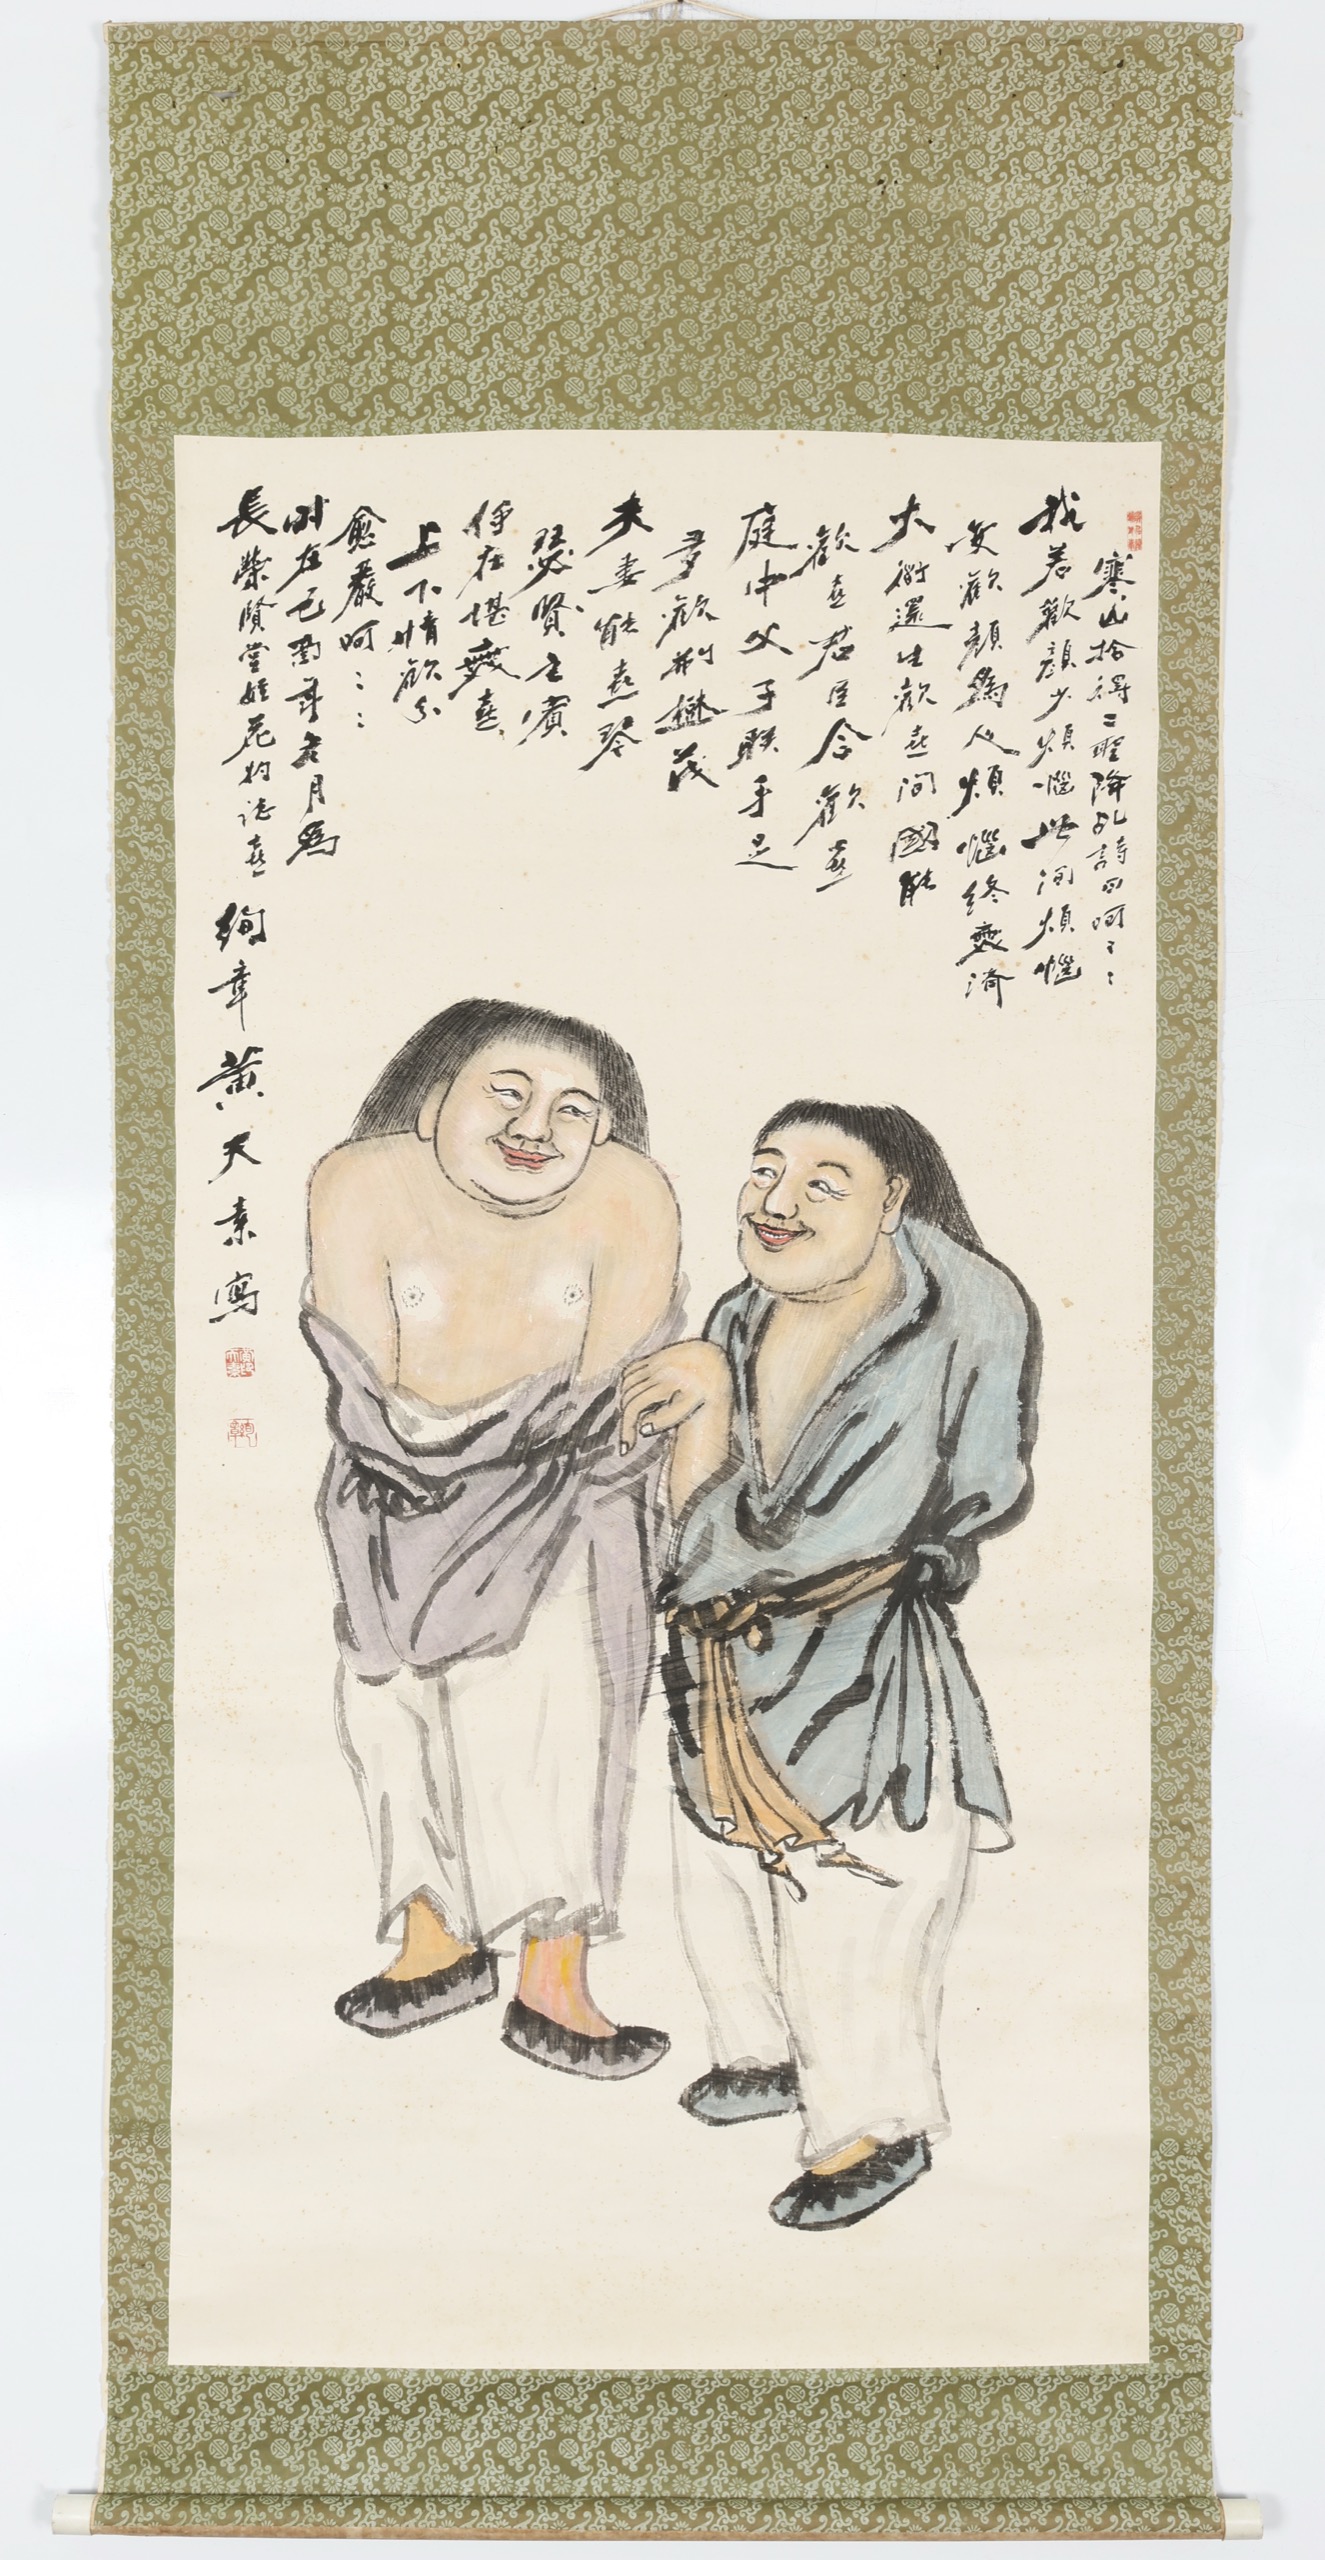 寒山拾得二聖降乩詩曰呵〻〻
我若歡顏少煩惱世间煩惱
変歡顏為人煩惱終無濟
大衜還生歡喜间國能
歡喜君臣合歡喜
庭中父子聯手足
多歡荊樹茂
夫妻能喜琴
瑟賢主賓
何在堪無喜
上下情歡分
愈嚴呵〻〻
时在己酉年月為
長榮賢堂姪花灼誌喜
絢章黃天素寫